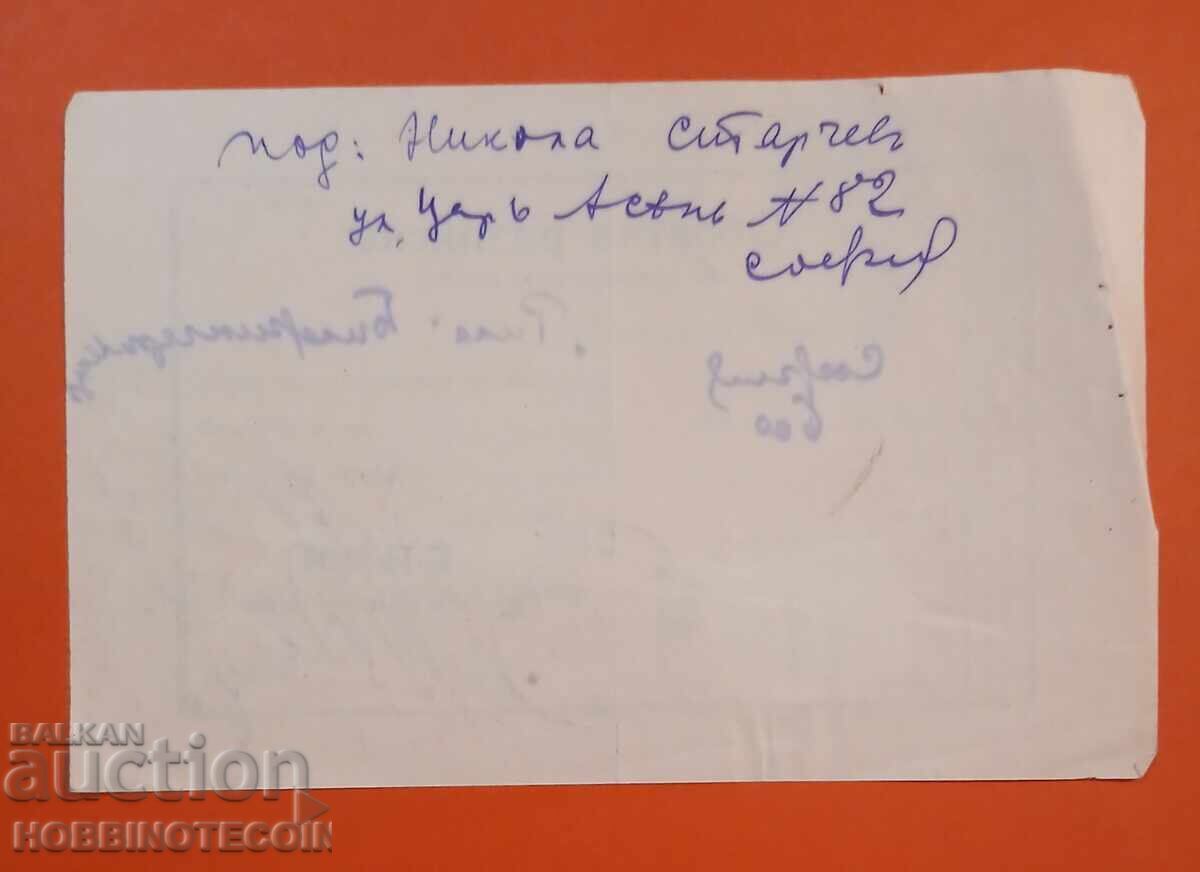 под: Никола Старчев
ул, Царь Асѣнь № 82
София
"Рила"
София
600
BALKAN
auction
HOBBINOTECOIN